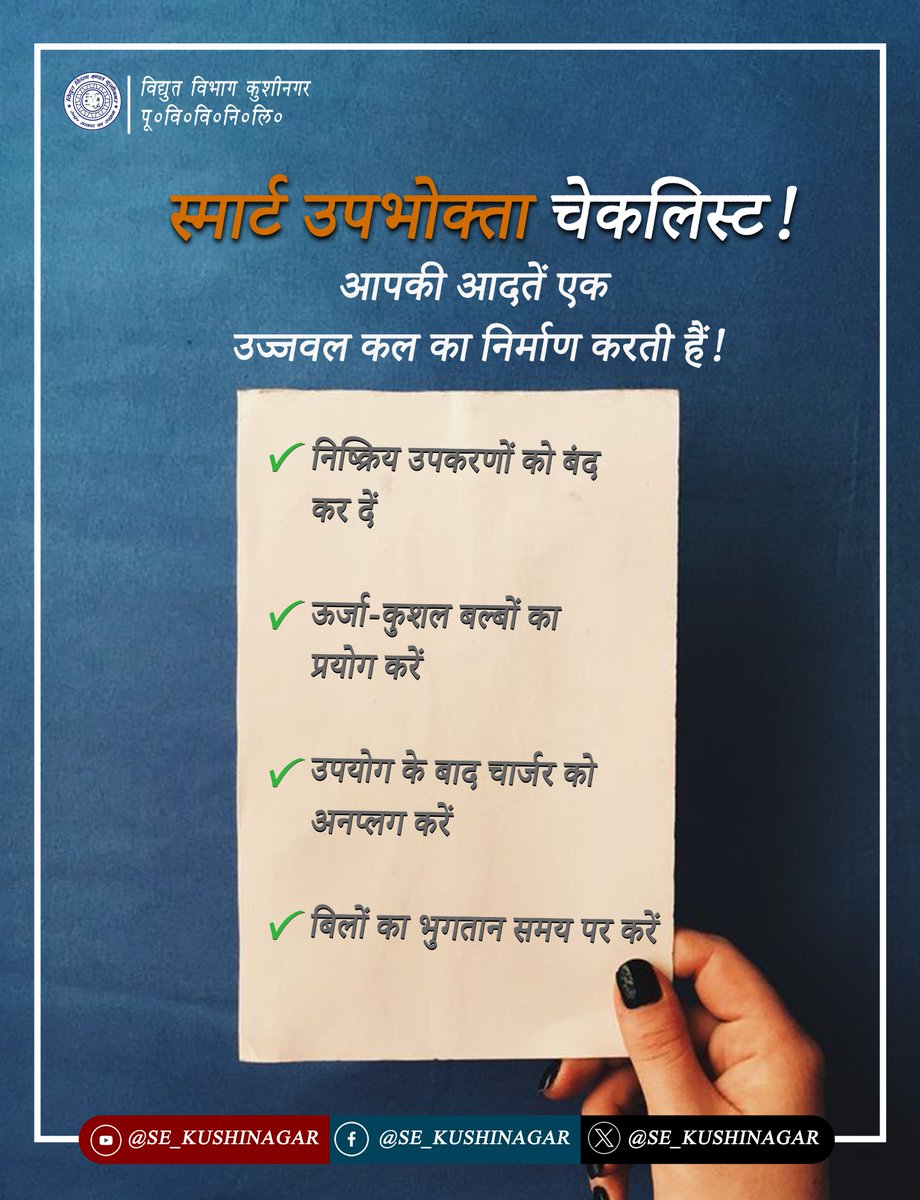 विद्युत विभाग कुशीनगर
पू०वि०वि०नि०लि०
स्मार्ट उपभोक्ता चेकलिस्ट!
आपकी आदतें एक
उज्जवल कल का निर्माण करती हैं!
निष्क्रिय उपकरणों को बंद
कर दें
ऊर्जा-कुशल बल्बों का
प्रयोग करें
उपयोग के बाद चार्जर को
अनप्लग करें
बिलों का भुगतान समय पर करें
@SE_KUSHINAGAR
@SE_KUSHINAGAR
@SE_KUSHINAGAR